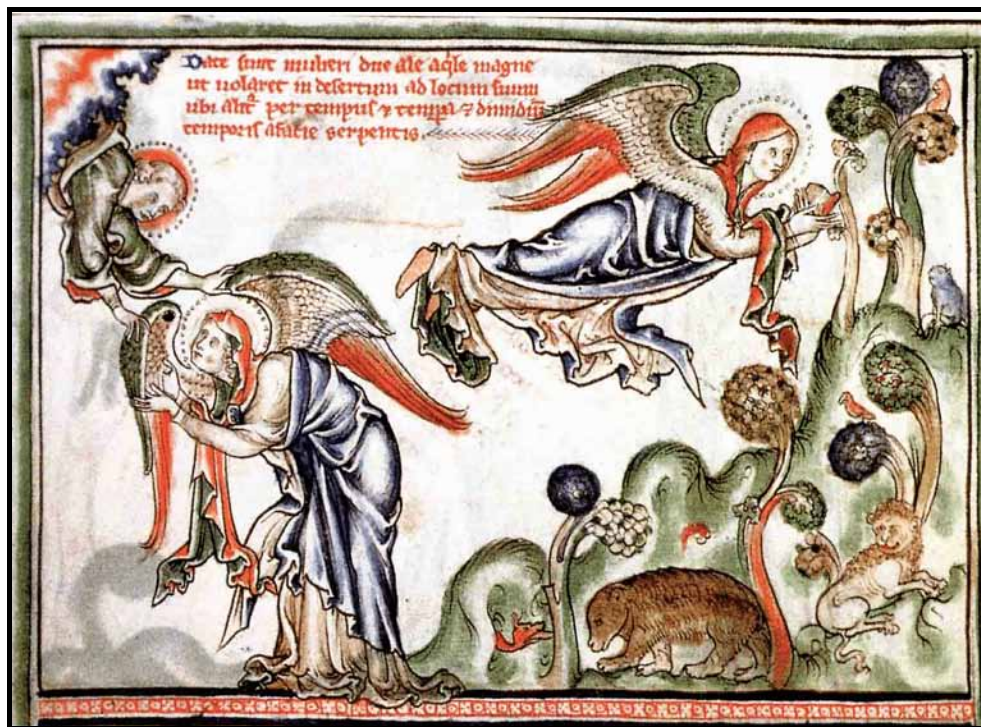 Date sunt mulieri due ale aqle magne
ut uolaret in desertum ad locum suum
ubi alit per tempus ⁊ tempa ⁊ dimidiu
temporis a facie serpentis.